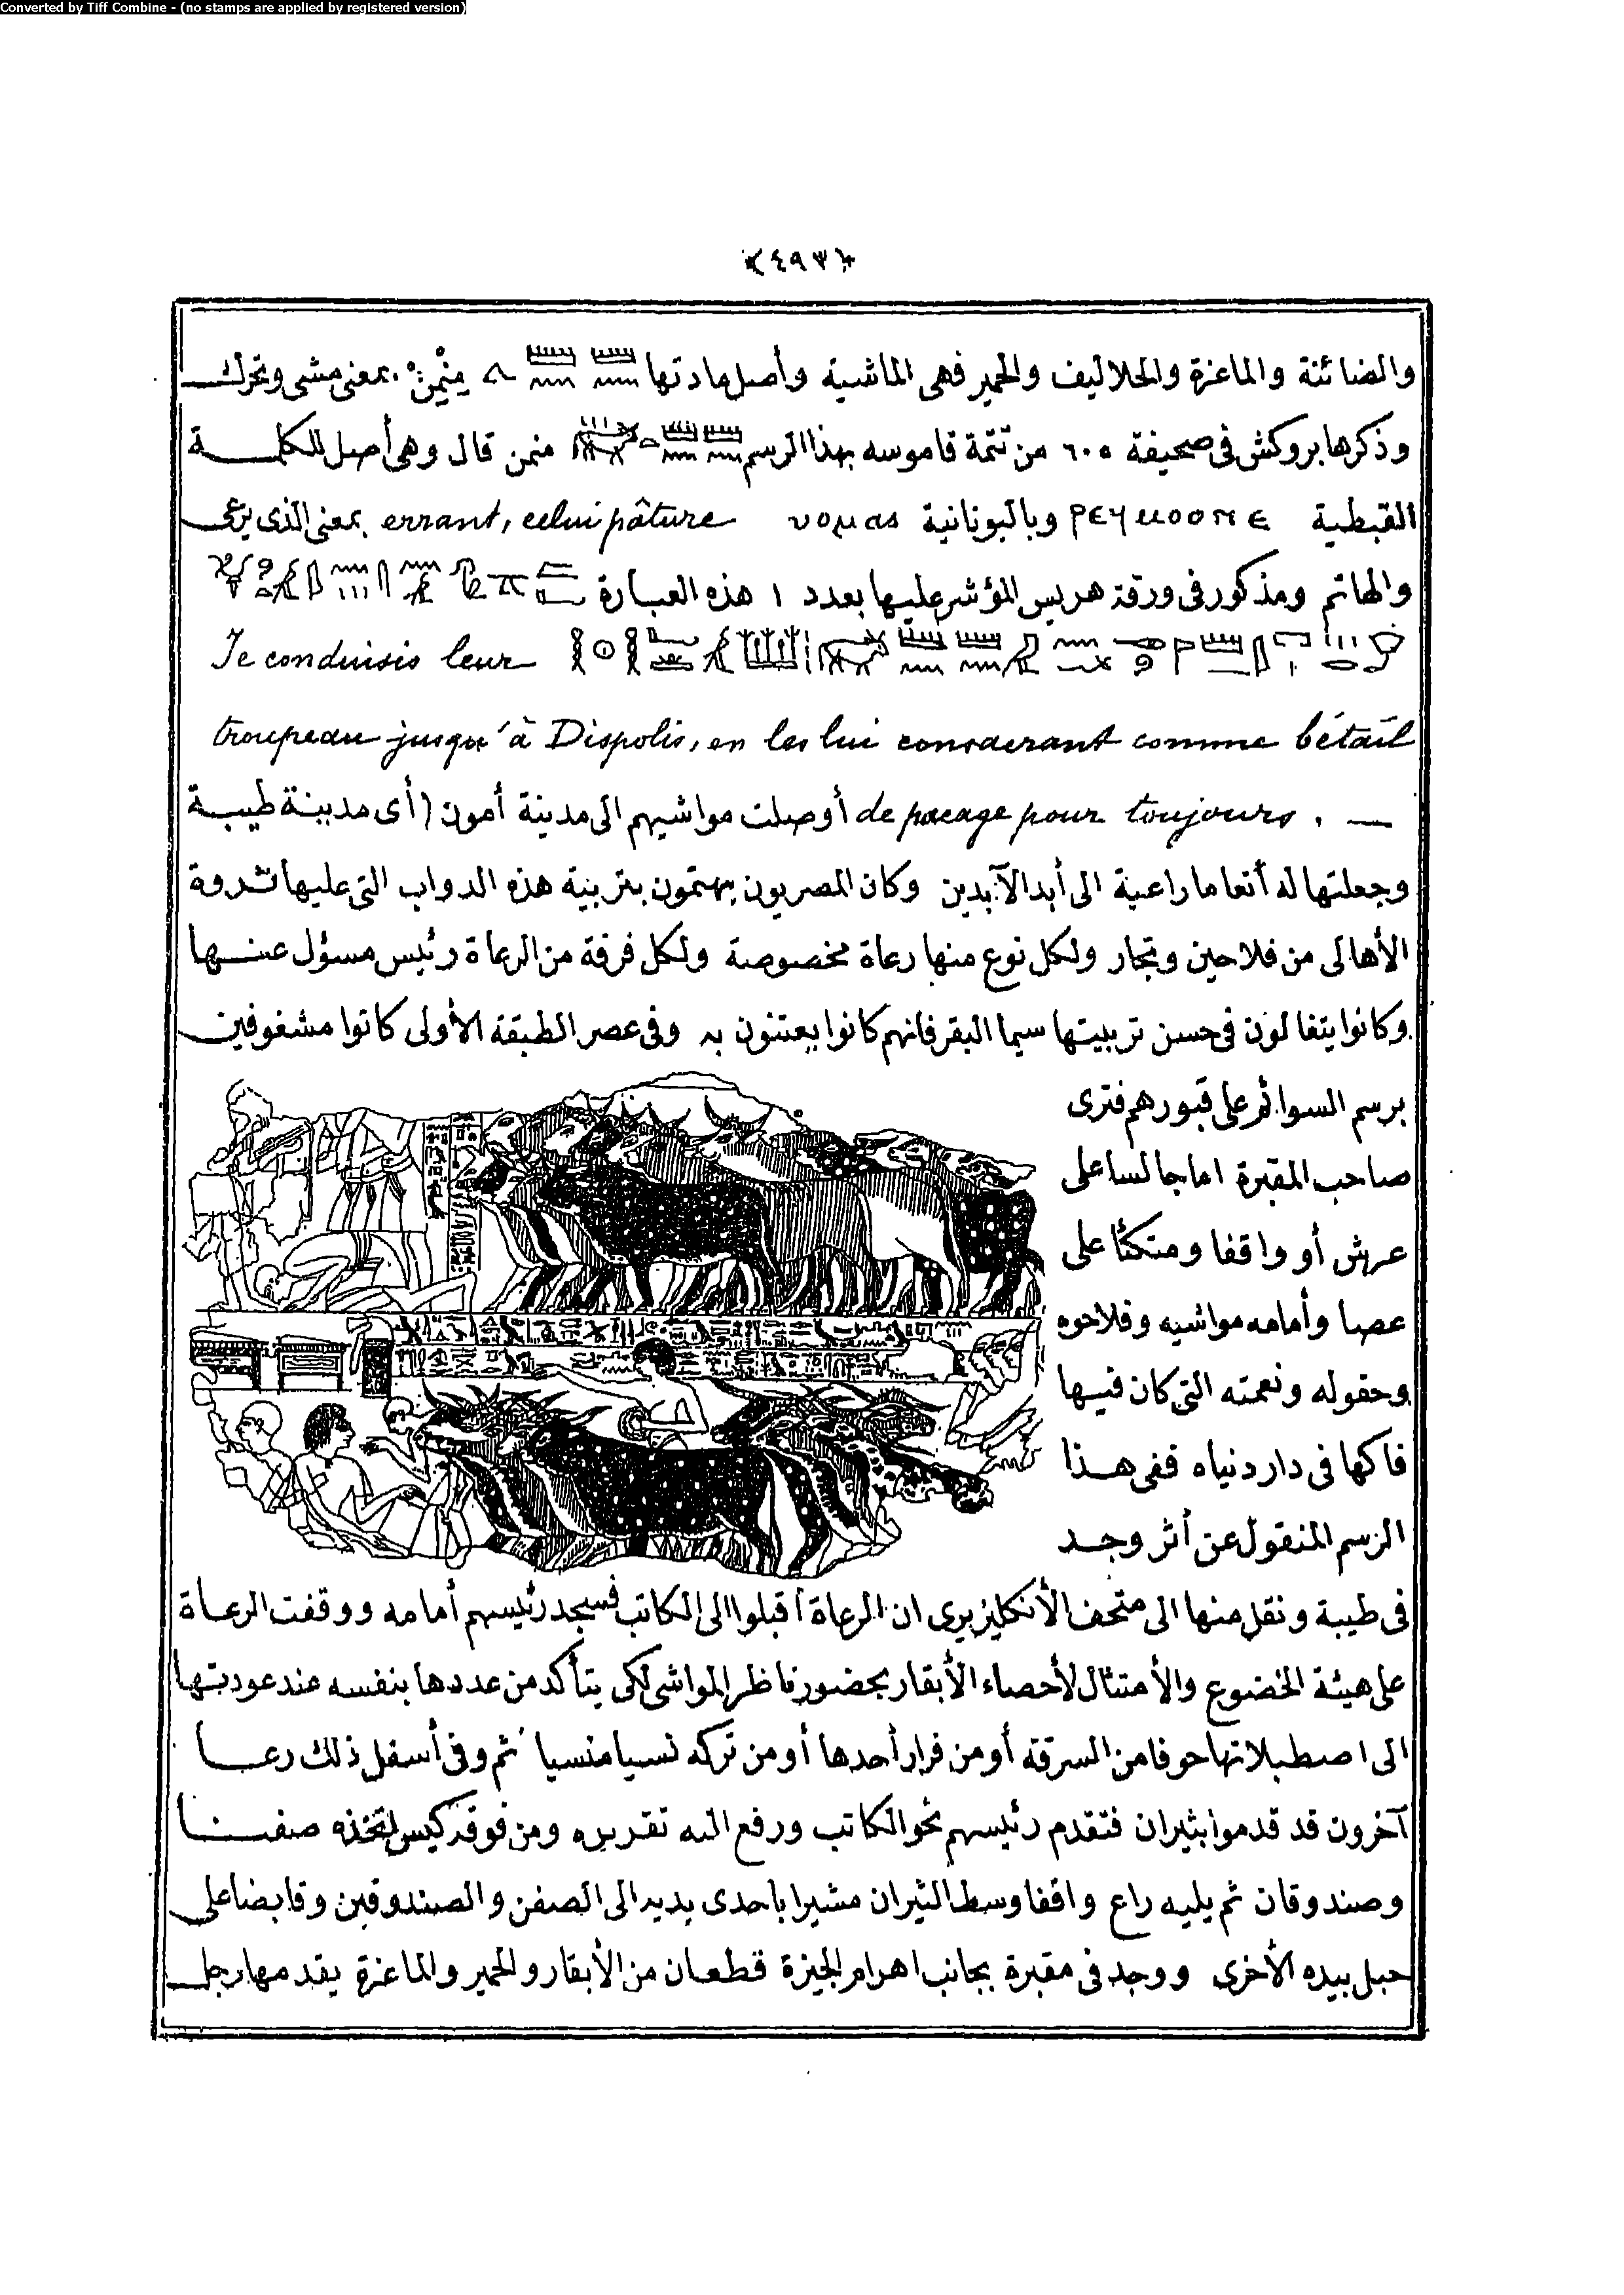 Converted by Tiff Combine - (no stamps are applied by registered version)
﴿٤٩٣﴾
والضائنة والماعزة والحلاليف والحمير فهى الماشية وأصل مادتها منمن بمعنى مشى وتحرك
وذكرها بروكش فى صحيفة ٦٠٥ من تتمة قاموسه بهذا الرسم منمن قال وهى أصل للكلمة
القبطية ⲢⲈϤⲘⲞⲞⲚⲈ وباليونانية νομας errant, celui pâture بمعنى الذى يرعى
والهاتم ومذكور فى ورقة هريس المؤشر عليها بعدد ١ هذه العبارة
Je conduisis leur
troupeau jusqu'à Dispolis, en les lui considerant comme bétail
de pacage pour toujours. — أوصلت مواشيهم الى مدينة أمون (أى مدينة طيبة
وجعلتها له أنعاما راعية الى أبد الآبدين وكان المصريون يهتمون بتربية هذه الدواب التى عليها ثروة
الأهالى من فلاحين وتجار ولكل نوع منها رعاة مخصوصة ولكل فرقة من الرعاة رئيس مسؤل عنها
وكانوا يتغالون فى حسن تربيتها سيما البقر فانهم كانوا يعتنون به وفى عصر الطبقة الأولى كانوا مشغوفين
برسم السوائم على قبورهم فترى
صاحب المقبرة اما جالسا على
عرش أو واقفا ومتكئا على
عصا وأمامه مواشيه وفلاحوه
وحقوله ونعمته التى كان فيها
فاكها فى دار دنياه ففى هذا
الرسم المنقول عن أثر وجد
فى طيبة ونقل منها الى متحف الأنكليز يرى ان الرعاة أقبلوا الى الكاتب فسجد رئيسهم أمامه ووقفت الرعاة
على هيئة الخضوع والأمتثال لأحصاء الأبقار بحضور ناظر المواشى لكى يتأكد من عددها بنفسه عند عودتها
الى اصطبلاتها خوفا من السرقة أو من فرار أحدها أو من تركه نسيا منسيا ثم وفى أسفل ذلك رعا
آخرون قد قدموا بثيران فتقدم رئيسهم نحو الكاتب ورفع اليه تقريره ومن فوقه كيس لتخذه صفنا
وصندوقان ثم يليه راع واقفا وسط الثيران مشيرا باحدى يديه الى الصفن والصندوقين وقابضا على
حبل بيده الأخرى ووجد فى مقبرة بجانب اهرام الجيزة قطعان من الأبقار والحمير والماعزة يقدمها رجل